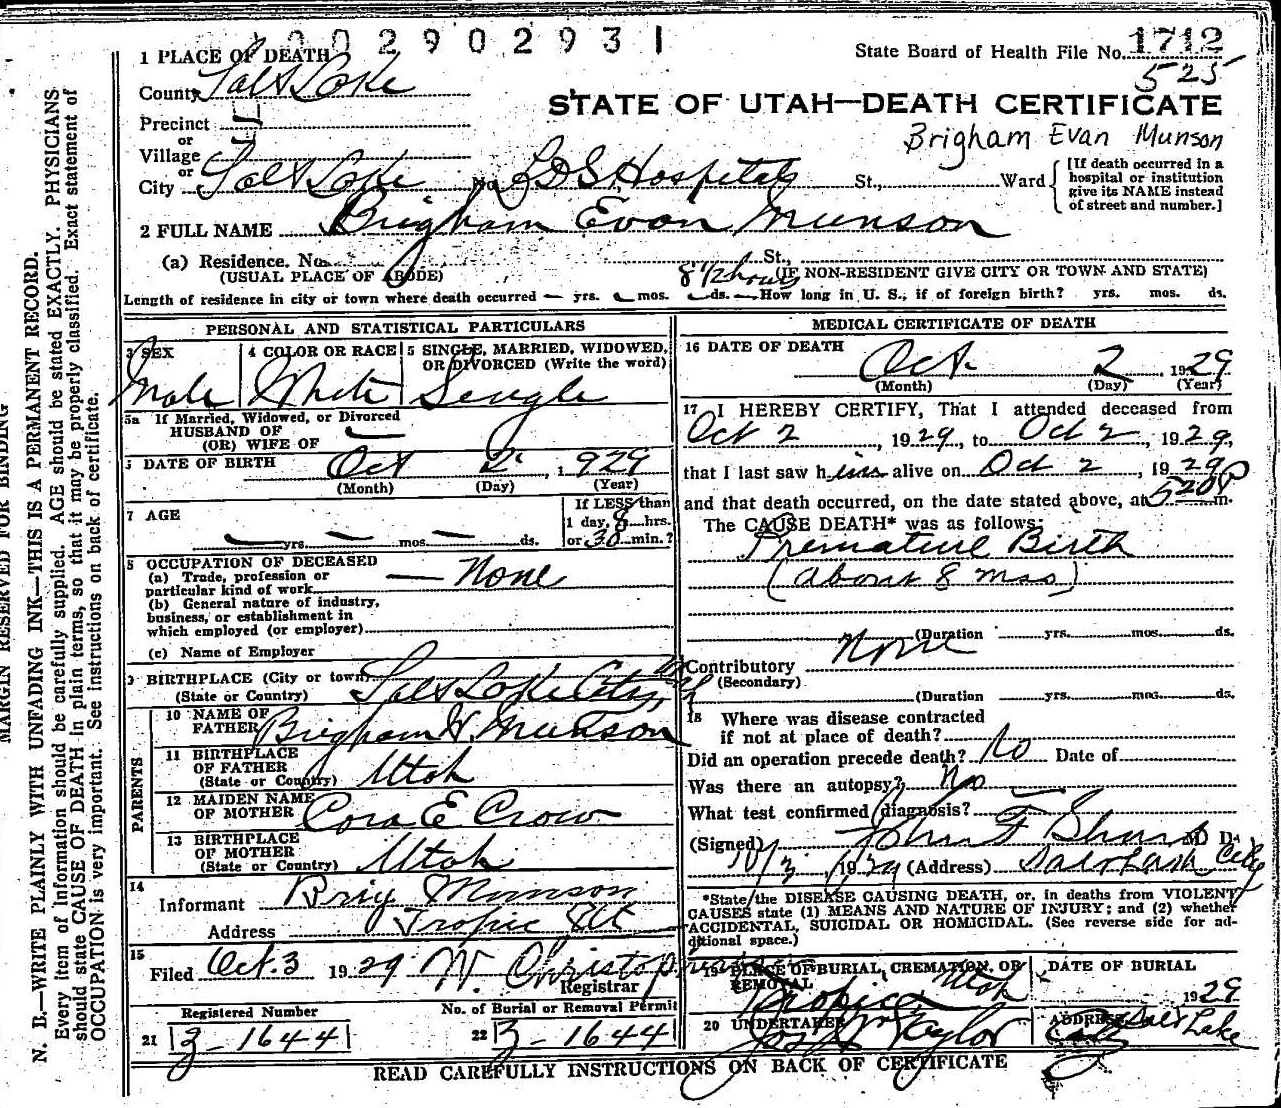 002902931
1 PLACE OF DEATH
State Board of Health File No. 1712
525
County Salt Lake
STATE OF UTAH—DEATH CERTIFICATE
Precinct
or
Village
Brigham Evan Munson
or
City Salt Lake No. LDS Hospital St., Ward
[If death occurred in a
hospital or institution
give its NAME instead
of street and number.]
2 FULL NAME Brigham Evan Munson
(a) Residence. No. St.,
(USUAL PLACE OF ABODE) (IF NON-RESIDENT GIVE CITY OR TOWN AND STATE)
8 1/2 hours
Length of residence in city or town where death occurred — yrs. mos. ds. How long in U. S., if of foreign birth? yrs. mos. ds.
PERSONAL AND STATISTICAL PARTICULARS
3 SEX
Male
4 COLOR OR RACE
White
5 SINGLE, MARRIED, WIDOWED,
OR DIVORCED (Write the word)
Single
5a If Married, Widowed, or Divorced
HUSBAND OF
(OR) WIFE OF
DATE OF BIRTH Oct 2 1929
(Month) (Day) (Year)
7 AGE
yrs. mos. ds.
If LESS than
1 day, 8 hrs.
or 30 min.?
8 OCCUPATION OF DECEASED
(a) Trade, profession or
particular kind of work — None
(b) General nature of industry,
business, or establishment in
which employed (or employer)
(c) Name of Employer
9 BIRTHPLACE (City or town)
(State or Country) Salt Lake City
PARENTS
10 NAME OF
FATHER Brigham W. Munson
11 BIRTHPLACE
OF FATHER
(State or Country) Utah
12 MAIDEN NAME
OF MOTHER Cora E Crow
13 BIRTHPLACE
OF MOTHER
(State or Country) Utah
14
Informant Brig Munson
Address Tropic Ut
15
Filed Oct. 3 1929 W. Christopherson
Registrar
Registered Number
21 3-1644
No. of Burial or Removal Permit
22 3-1644
MEDICAL CERTIFICATE OF DEATH
16 DATE OF DEATH
Oct. 2 1929
(Month) (Day) (Year)
17 I HEREBY CERTIFY, That I attended deceased from
Oct 2, 1929, to Oct 2, 1929,
that I last saw him alive on Oct 2, 1929
and that death occurred, on the date stated above, at 520 P m.
The CAUSE DEATH* was as follows:
Premature Birth
(about 8 mos)
(Duration yrs. mos. ds.
Contributory None
(Secondary)
(Duration yrs. mos. ds.
18 Where was disease contracted
if not at place of death?
Did an operation precede death? No Date of
Was there an autopsy? No
What test confirmed diagnosis? —
(Signed) John F Sharp M D.
10/3, 1929 (Address) Salt Lake City
*State the DISEASE CAUSING DEATH, or, in deaths from VIOLENT
CAUSES state (1) MEANS AND NATURE OF INJURY; and (2) whether
ACCIDENTAL, SUICIDAL OR HOMICIDAL. (See reverse side for ad-
ditional space.)
19 PLACE OF BURIAL, CREMATION, OR
REMOVAL
Tropic Utah
DATE OF BURIAL
1929
20 UNDERTAKER
Jos Wm Taylor
ADDRESS Salt Lake
City
READ CAREFULLY INSTRUCTIONS ON BACK OF CERTIFICATE
MARGIN RESERVED FOR BINDING
N. B.—WRITE PLAINLY WITH UNFADING INK—THIS IS A PERMANENT RECORD.
Every item of information should be carefully supplied. AGE should be stated EXACTLY. PHYSICIANS
should state CAUSE OF DEATH in plain terms, so that it may be properly classified. Exact statement of
OCCUPATION is very important. See instructions on back of certificate.